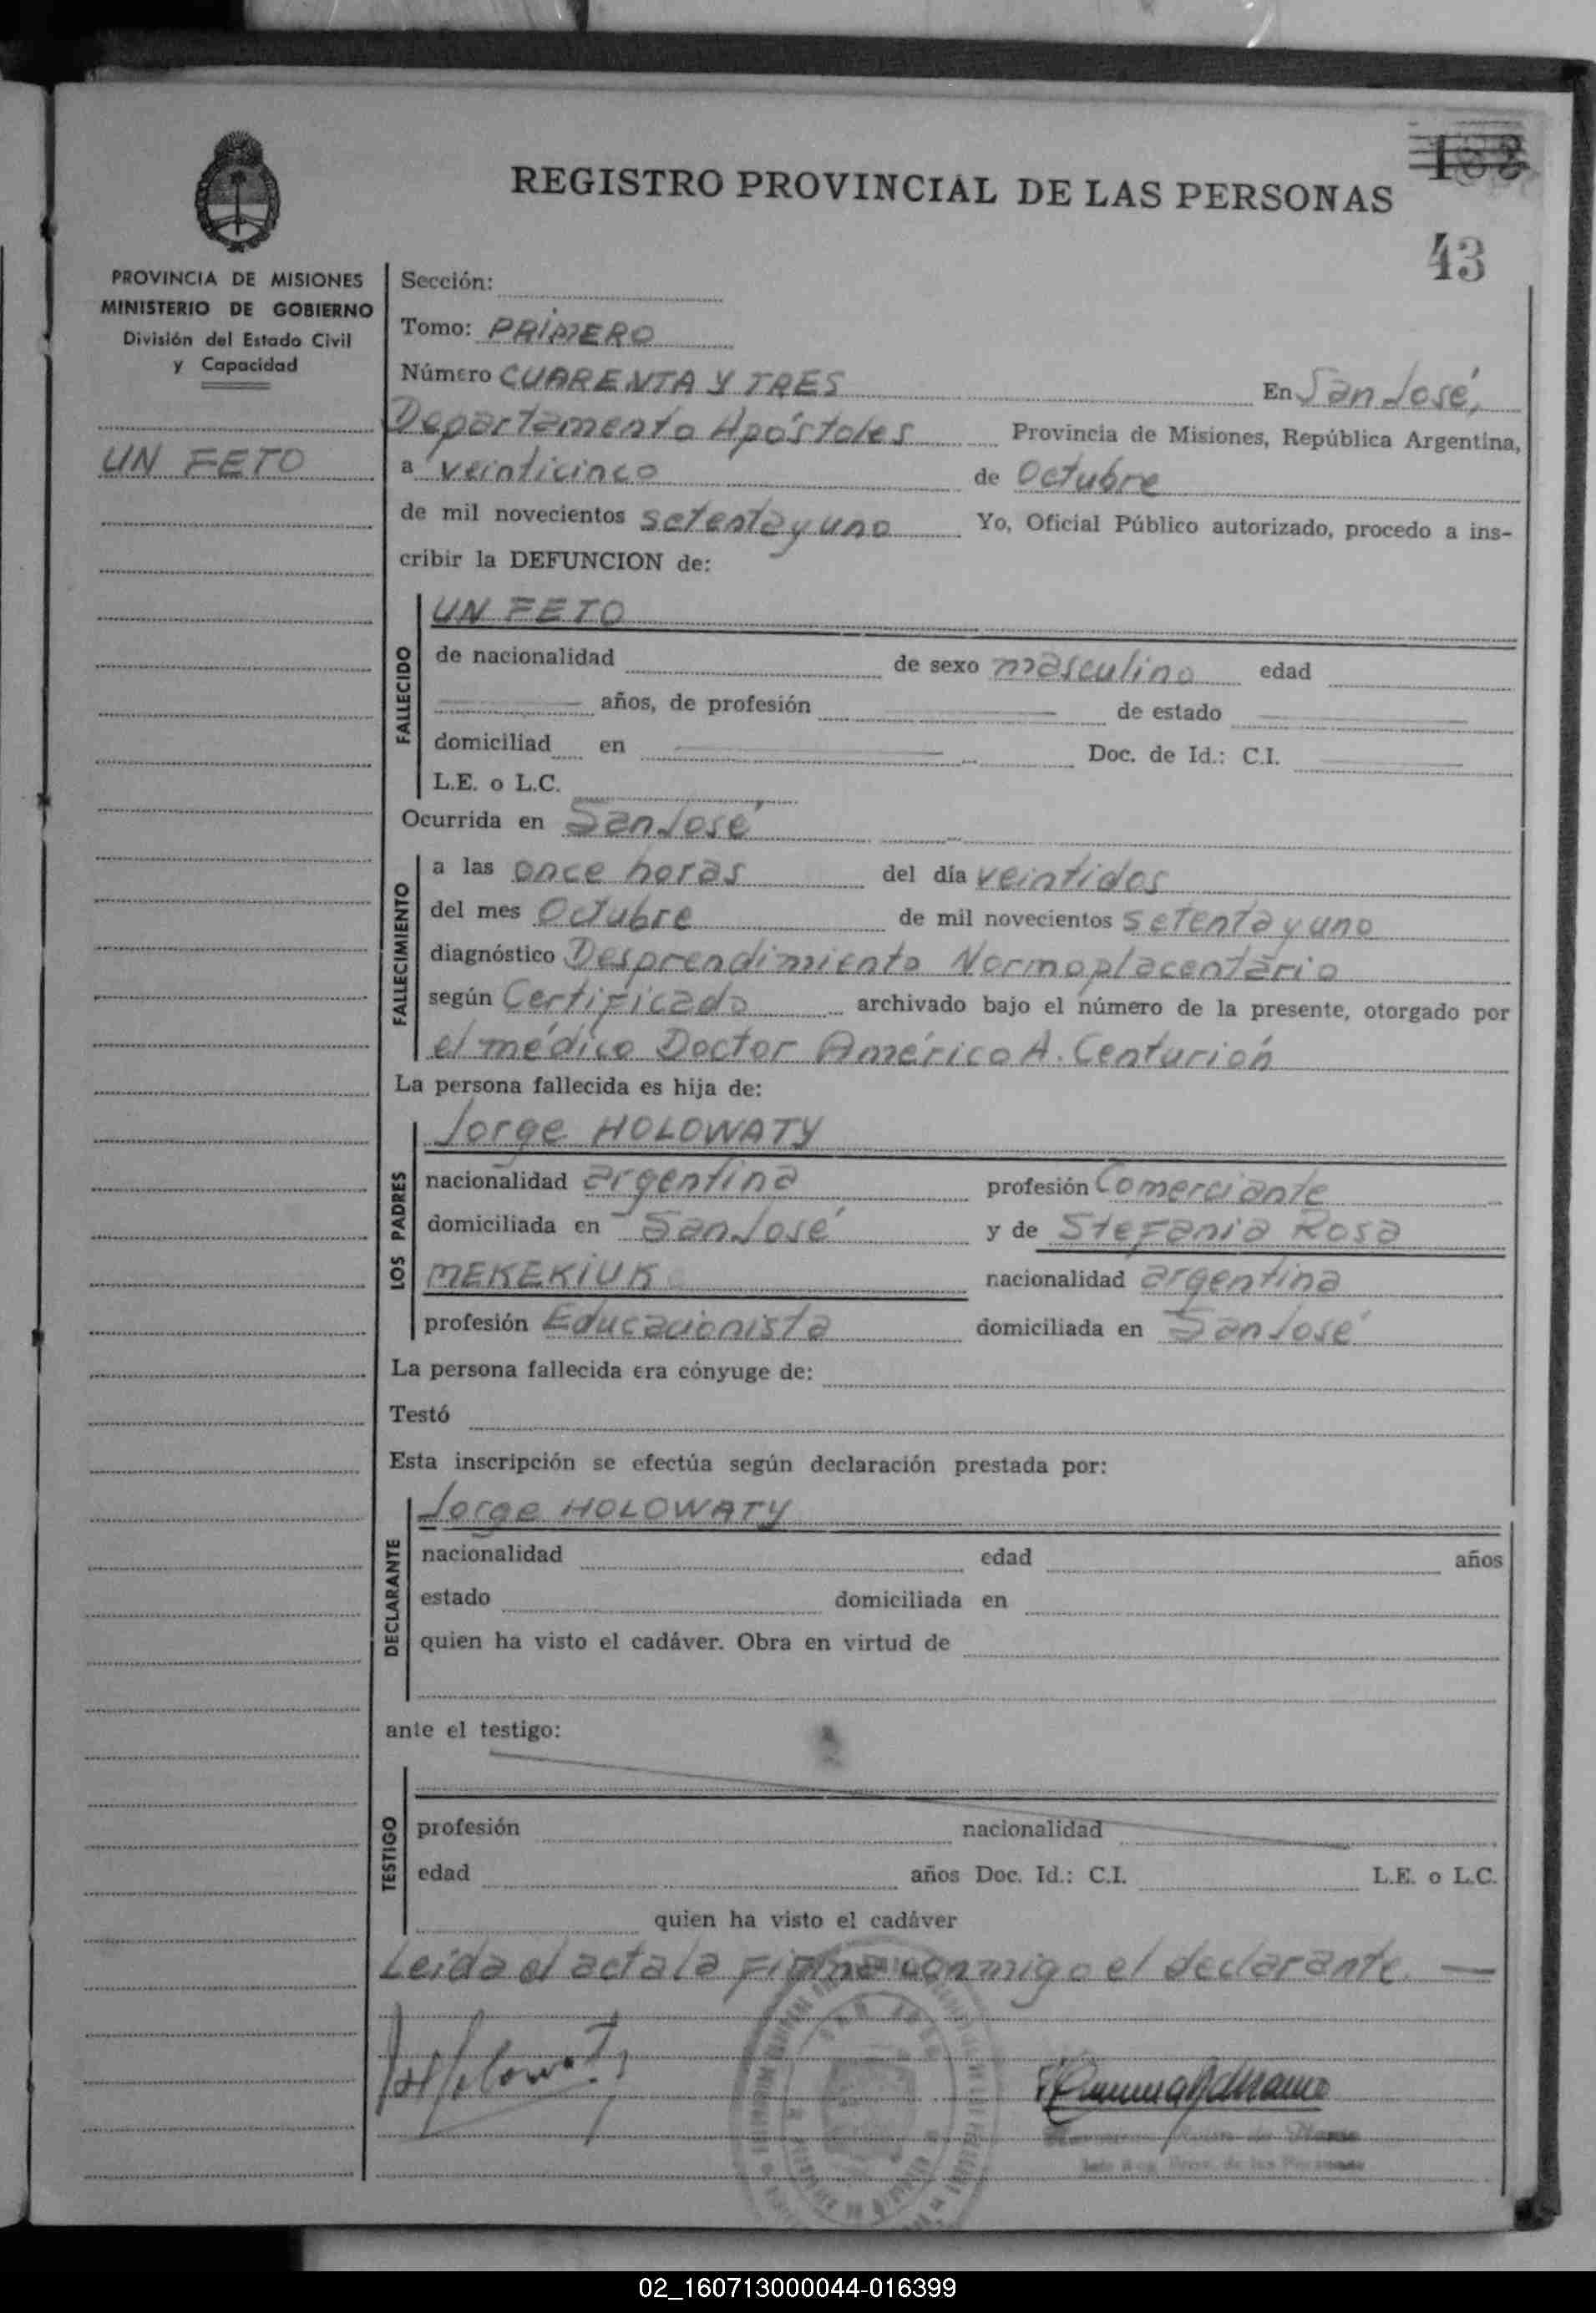 REGISTRO PROVINCIAL DE LAS PERSONAS
43
PROVINCIA DE MISIONES
MINISTERIO DE GOBIERNO
División del Estado Civil
y Capacidad
UN FETO
Sección:
Tomo: PRIMERO
Número CUARENTA Y TRES En San José,
Departamento Apóstoles Provincia de Misiones, República Argentina,
a veinticinco de Octubre
de mil novecientos setenta y uno Yo, Oficial Público autorizado, procedo a ins-
cribir la DEFUNCION de:
FALLECIDO
UN FETO
de nacionalidad de sexo masculino edad
años, de profesión de estado
domiciliad en Doc. de Id.: C.I.
L.E. o L.C.
Ocurrida en San José
FALLECIMIENTO
a las once horas del día veintidos
del mes Octubre de mil novecientos setenta y uno
diagnóstico Desprendimiento Normoplacentário
según Certificado archivado bajo el número de la presente, otorgado por
el médico Doctor Américo A. Centurión
La persona fallecida es hija de:
LOS PADRES
Jorge HOLOWATY
nacionalidad argentina profesión Comerciante
domiciliada en San José y de Stefania Rosa
MEKEKIUK nacionalidad argentina
profesión Educacionista domiciliada en San José
La persona fallecida era cónyuge de:
Testó
Esta inscripción se efectúa según declaración prestada por:
DECLARANTE
Jorge HOLOWATY
nacionalidad edad años
estado domiciliada en
quien ha visto el cadáver. Obra en virtud de
ante el testigo:
TESTIGO
profesión nacionalidad
edad años Doc. Id.: C.I. L.E. o L.C.
quien ha visto el cadáver
Leída el acta la firma conmigo el declarante. —
02_160713000044-016399